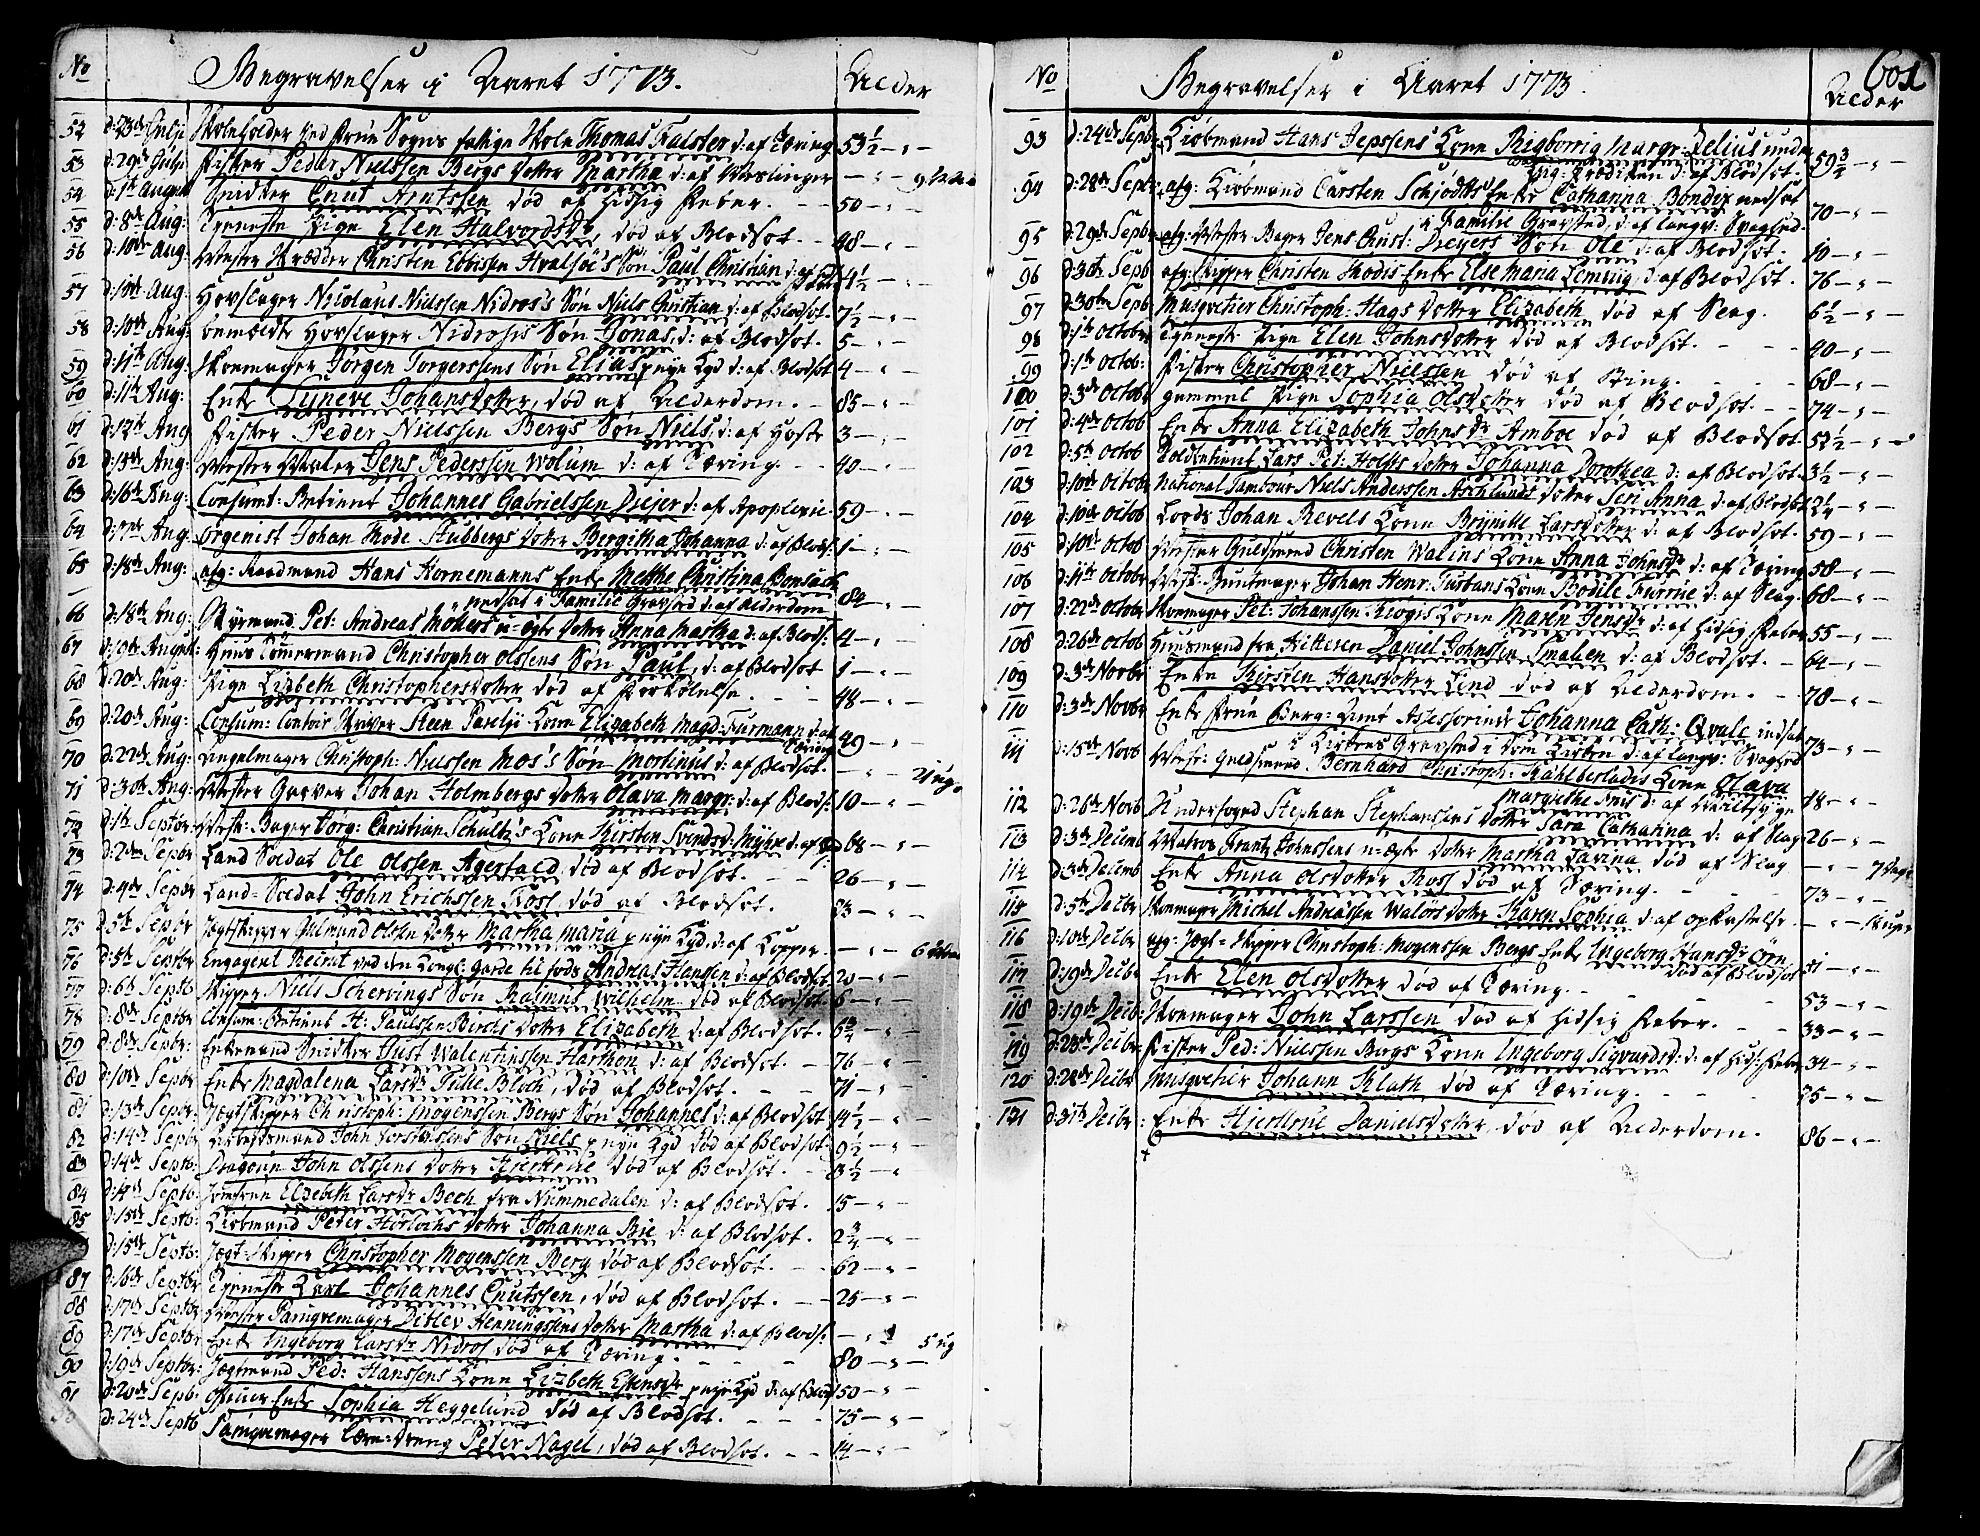 No Begravelser i Aaret 1773. Alder
52 d: 23de Julii Skoleholder ved Frue Sogns fattige Skole Thomas Falster d: af Tæring 53 1/2 - " -
53 d: 29de Julii Fisker Peder Nielssen Bergs Dotter Martha d: af Meslinger - " -
54 d: 1te August Snidker Cnud Arntssen død af hidsig Feber. 50 - " -
55 d: 8de Aug: Tieneste Pige Elen Halvordsdr, død af Blodsot. 48 - " -
56 d: 10de Aug: Mester Skrædder Christen Ebbissen Hvalsöe's Søn Paul Christian d: af 4 1/2 - " -
57 d: 10de Aug: Hovslager Nicolaus Nielssen Nidros's Søn Niels Christian d: af Blodsot. 7 1/2 - " -
58 d: 10de Aug: ommeldte Hovslager Nidroses Søn Jonas, d: af Blodsot. 5 - " -
59 d: 11te Aug: Skomager Jörgen Torgerssens Søn Elias paa nye Kgd d: af Blodsot 4 - "
60 d: 11te Aug: Enke Synneve Johansdotter, død af Alderdom. 85 - " -
61 d: 12te Aug Fisker Peder Nielssen Bergs Søn Niels, d: af Hoste 3 - " -
62 d: 13de Aug: Mester Maler Jens Pederssen Wolum d: af Tæring. 40 - " -
63 d: 16de Aug: Consumt: Betient Johannes Gabrielssen Dreyer d: af Apoplexie 59 - " -
64 d: 17de Aug: Orgenist Johan Thode Stubbergs Dotter Bergitha Johanna d: af Blods: 1 - " -
65 d: 18de Aug: afg: Raadmand Hans Hornemanns Enke Mette Christina Bonsach
nedsat i Familie Gravsted d: af Alderdom 84 - " -
66 d: 18de Aug: Styrmand Pet: Andreas Möllers u-ægte Dotter Anna Martha d: af Blods: 4 - "
67 d: 19de August: Huus Tömmermand Christopher Olssens Søn Paul, d: af Blodsot 1 - " -
68 d: 20de Aug: Pige Lisbeth Christophersdotter død af Forkølelse. 48 - " -
69 d: 20de Aug: Consum: Contoir Skriver Steen Parelii Kone Elizabeth Magd: Furmann d: af
Tæring 49 - " -
70 d: 22de Aug: Angelmager Christoph: Nielssen Mos's Søn Mortinus d: af Blodsot. - " - 21 ug:
71 d: 30te Aug: Mester Garver Johan Holmbergs Dotter Olava Margr: d: af Blods: 10 - " -
72 d: 1te Septbr: Mest: Bager Jörg: Christian Schultz's Kone Kirsten Svendsd: Myhre d: af 68 - " -
73 d: 2den Septbr Land Soldat Ole Olssen Agerfald, død af Blodsot. 26 - " -
74 d: 4de Septbr Land-Soldat John Erichssen Foss, død af Blodsot. 23 - " -
75 d: 5te Septbr Jægtskipper Gulmund Olssen Dotter Martha Maria paa nye Kgd, d: af Kopper. - " -
76 d: 5te Septbr Engageret Recrut ved den Kongl: Garde til Fods Andreas Hanssen d: af Blodsot 20 - " -
77 d: 6te Septb Skipper Niels Schervings Søn Rasmus Wilhelm død af Blodsot 6 - " -
78 d: 8de Septbr Consum: Betient H: Paulssen Berchs Dotter Elizabeth d: af Blodsot. 6 3/4 - " -
79 d: 8de Septbr: Enkemand Snidker Just Walentinssen Harthon d: af Blodsot. 76 - " -
80 d: 10de Septbr Enke Magdalena Larsdr Tidse Bloch, død af Blodsot. 74 - " -
81 d: 13de Septbr: Jægtskipper Christoph: Mogenssen Bergs Søn Johannes d: af Blodsot 14 1/2 - "
82 d: 14de Septbr Arbeidsmand John Torstenssens Søn Niels paa nye Kgd død af Blodsot. 9 1/2 - "
83 d: 14de Septb: Dragoun John Olssens Dotter Kiersten død af Blodsot. 3 1/2 - "
84 d: 14de Septb: Jomfrue Elzebeth Larsdr Bech fra Nummedalen d: af Blodsot. 15 - "
85 d: 15de Septb: Kiøbmand Peter Hörlochs Dotter Johanna Bie d: af Blodsot. 2 3/4 - "
d: 15de Septb: Jægt-Skipper Christopher Mogenssen Berg død af Blodsot. 62 - " -
87 d: 16de Septbr Tieneste Karl Johannes Cnutssen, død af Blodsot. 25 - " -
88 d: 17de Septbr Mester Parugvemager Ditlev Henningssens Dotter Martha d: af Blods: - " 5 ug
89 d: 17de Septbr: Enke Ingeborg Larsdr Nidros død af Tæring. 80 - " -
90 d: 19de Septbr: Jægtmand Ped: Hanssens Kone Lizbeth Estensdr paa nye Kgd d: af Blods 50 - " -
91 d: 20de Septb: Enke Sophia Heggelund død af Blodsot. 75 - " -
d: 24de Septb Parugvemager Lære-Dreng Peter Nagel, død af Blodsot. 14 - " -
601
No Begravelser i Aaret 1773. Alder
93 d: 24de Septb: Kiøbmand Hans Jepssens Kone Rigborrig Margr: Delius under
d: af Blodsot. 59 3/4 - " -
94 d: 28de Sept: afg: Kiöbmand Carsten Schjödtts Enke Cathanna Bondix nedsat
i Familie Gravsted, d: af langv: Svaghed. 70 - " -
95 d: 29de Septb: afg: Mester Bager Jens Christ: Dreyers Søn Ole d: af Blodsot. 10 - " -
96 d: 30te Septb: afg: Skipper Christen Thodis Enke Else Maria Lemvig d: af Blodsot. 76 - " -
97 d: 30te Septb: Musqvetier Christoph: Hags Dotter Elizabeth død af Slag. 6 1/2 - " -
98 d: 1te Octobr Tieneste Pige Elen Johnsdotter død af Blodsot. 40 - " -
99 d: 1te Octob: Fisker Christopher Nielssen død af Sting. 68 - " -
100 d: 3de Octobr gammel Pige Sophia Olsdotter død af Blodsot. 74 - " -
101 d: 4de Octob Enke Anna Elizabeth Johnsdr Amboe død af Blodsot 52 1/2 - " -
102 d: 5te Octob Toldbetient Lars Pet: Holsts Dotter Johanna Dorothea d: af Blodsot. 3 1/2 - " -
103 d: 10de Octobr National Tambour Niels Anderssen Asklunds Dotter Jen Anna d: af Blodsot 2 1/2 - " -
104 d: 10de Octob Loods Johan Revels Kone Brynille Larsdotter d: af Blodsot. 59 - " -
105 d: 10de Octob Mester Guldsmed Christen Walins Kone Anna Johnsdr d: af Tæring 58 - " -
106 d: 11te Octobr Mest: Buntmager Johan Henr: Tustans Kone Bodile Furrue d: af Slag. 68 - " -
107 d: 22de Octobr Skomager Pet: Johanssen Kiogis Kone Maren Jensdr d: af hidsig Feber 55 - " -
108 d: 26de Octob Huusmand fra Hitteren Daniel Johnssen Smalien d: af Blodsot. 64 - " -
109 d: 3de Novbr Enke Kirsten Hansdotter Lund død af Alderdom. 78 - " -
110 d: 3de Novbr Enke Frue Berg-Amt Assessorinde Johanna Cath: Qvale indsat
i Kirkens Gravsted i Dom Kirken d: af langv: Svaghed 73 - " -
111 d: 15de Novb Mest: Guldsmed Bernhard Christoph: Stahlberladis Kone Olava
Margrethe Friis d: af Miltsyge 48 - " -
112 d: 26de Novb Undersoged Stephan Stephanssens Dotter Sara Catharina d: af Slag 26 - " -
113 d: 3de Decemb Matros Frantz Johnssens u-ægte Dotter Martha Larina død af Slag - " - 7 Uger
114 d: 3de Decemb Enke Anna Olsdotter Moss død af Tæring. 73 - " -
115 d: 5te Decbr Skomager Michel Andreassen Walörs Dotter Karen Sophia d: af Opkastelse. - " -
116 d: 10de Decbr afg: Jægt-Skipper Christoph: Mogenssen Bergs Enke Ingeborg Hansdr Örn
død af Blodsot 51 - " -
117 d: 19de Decbr Enke Elen Olsdotter død af Tæring. 53 - " -
118 d: 19de Decbr: Skomager John Larssen død af hidsig Feber. 33 - " -
119 d: 23de Decbr: Fisker Ped: Nielssen Bergs Kone Ingeborg Sigvardsd: d: af Hids: Feber 34 - " -
120 d: 28de Decbr Musqvetier Johann Klath død af Tæring. 25 - " -
121 d: 31te Decbr: Enke Hiertrue Danielsdotter, død af Alderdom. 86 - " -